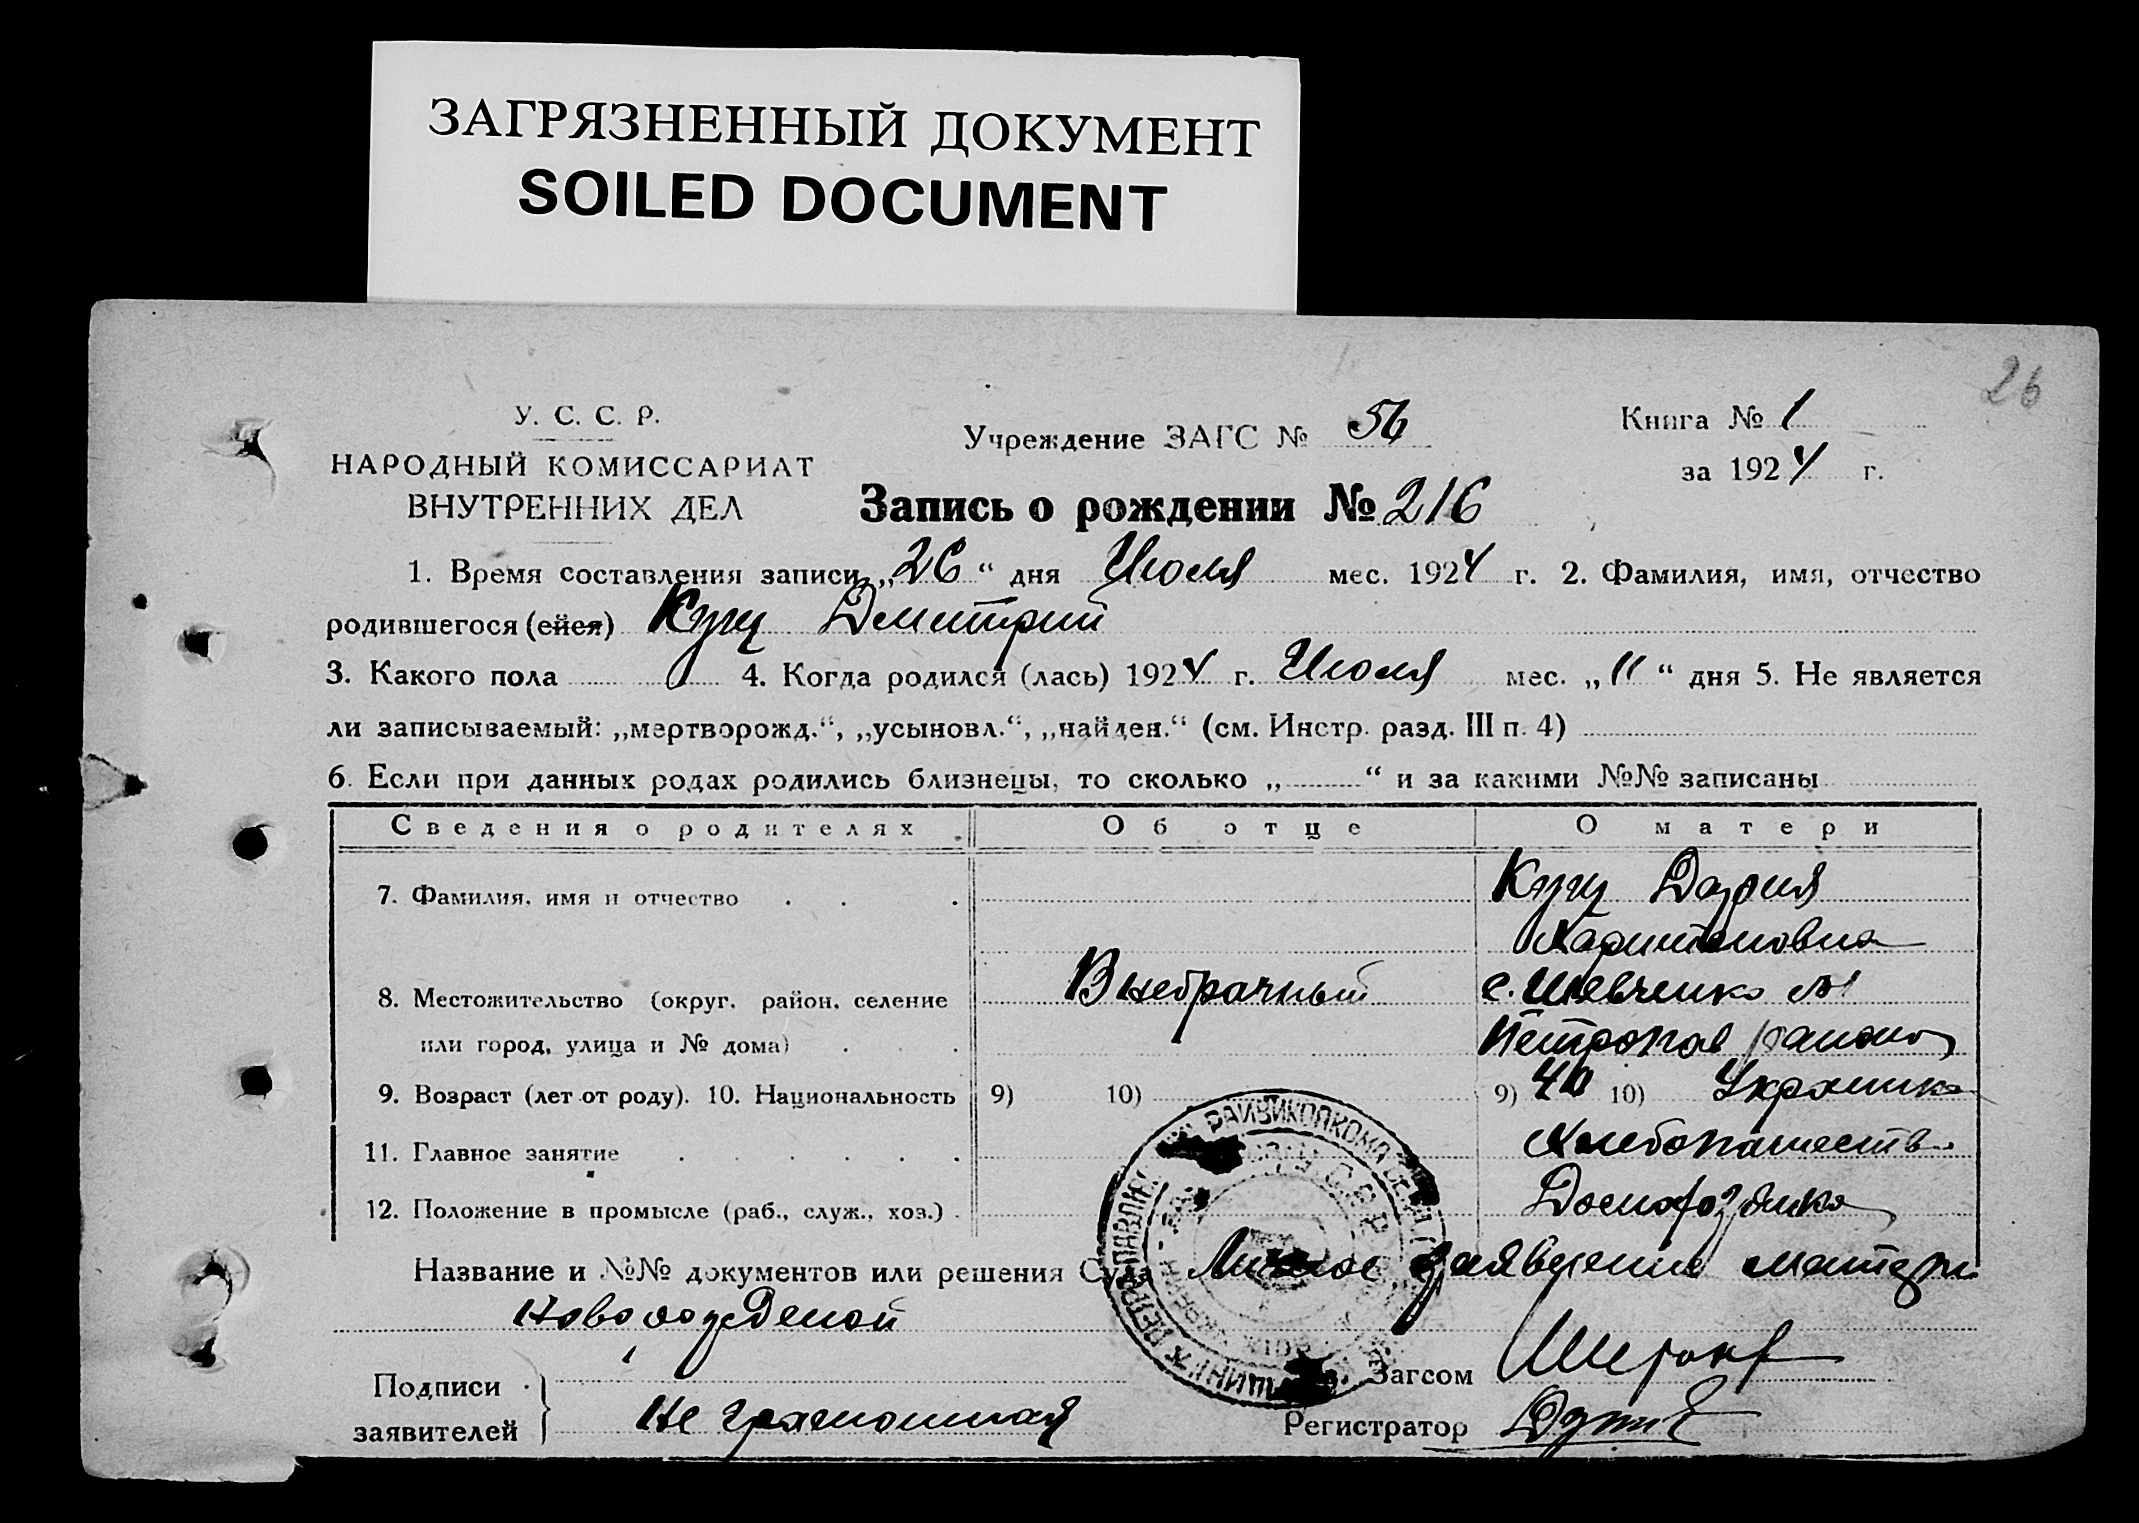 ЗАГРЯЗНЕННЫЙ ДОКУМЕНТ
SOILED DOCUMENT
26
У. С. С. Р.
Учреждение ЗАГС № 56
Книга № 1
НАРОДНЫЙ КОМИССАРИАТ
за 1924 г.
ВНУТРЕННИХ ДЕЛ
Запись о рождении № 216
1. Время составления записи „26“ дня Июля мес. 1924 г. 2. Фамилия, имя, отчество
родившегося (ейся) Куц Дмитрий
3. Какого пола 4. Когда родился (лась) 1924 г. Июля мес. „11“ дня 5. Не является
ли записываемый: „мертворожд.“, „усыновл.“, „найден.“ (см. Инстр. разд. III п. 4)
6. Если при данных родах родились близнецы, то сколько „ “ и за какими №№ записаны
Сведения о родителях Об отце О матери
7. Фамилия, имя и отчество Куц Дария
Харитоновна
8. Местожительство (округ, район, селение Внебрачный с. Шевченко №1
или город, улица и № дома) Петропав района
9. Возраст (лет от роду). 10. Национальность 9) 10) 9) 40 10) Украинка
11. Главное занятие Хлебопашество
12. Положение в промысле (раб., служ., хоз.) Домохозяйка
Название и №№ документов или решения Суда Личное заявление матери
новорожденой
Загсом
Подписи
заявителей Не грамотная
Регистратор